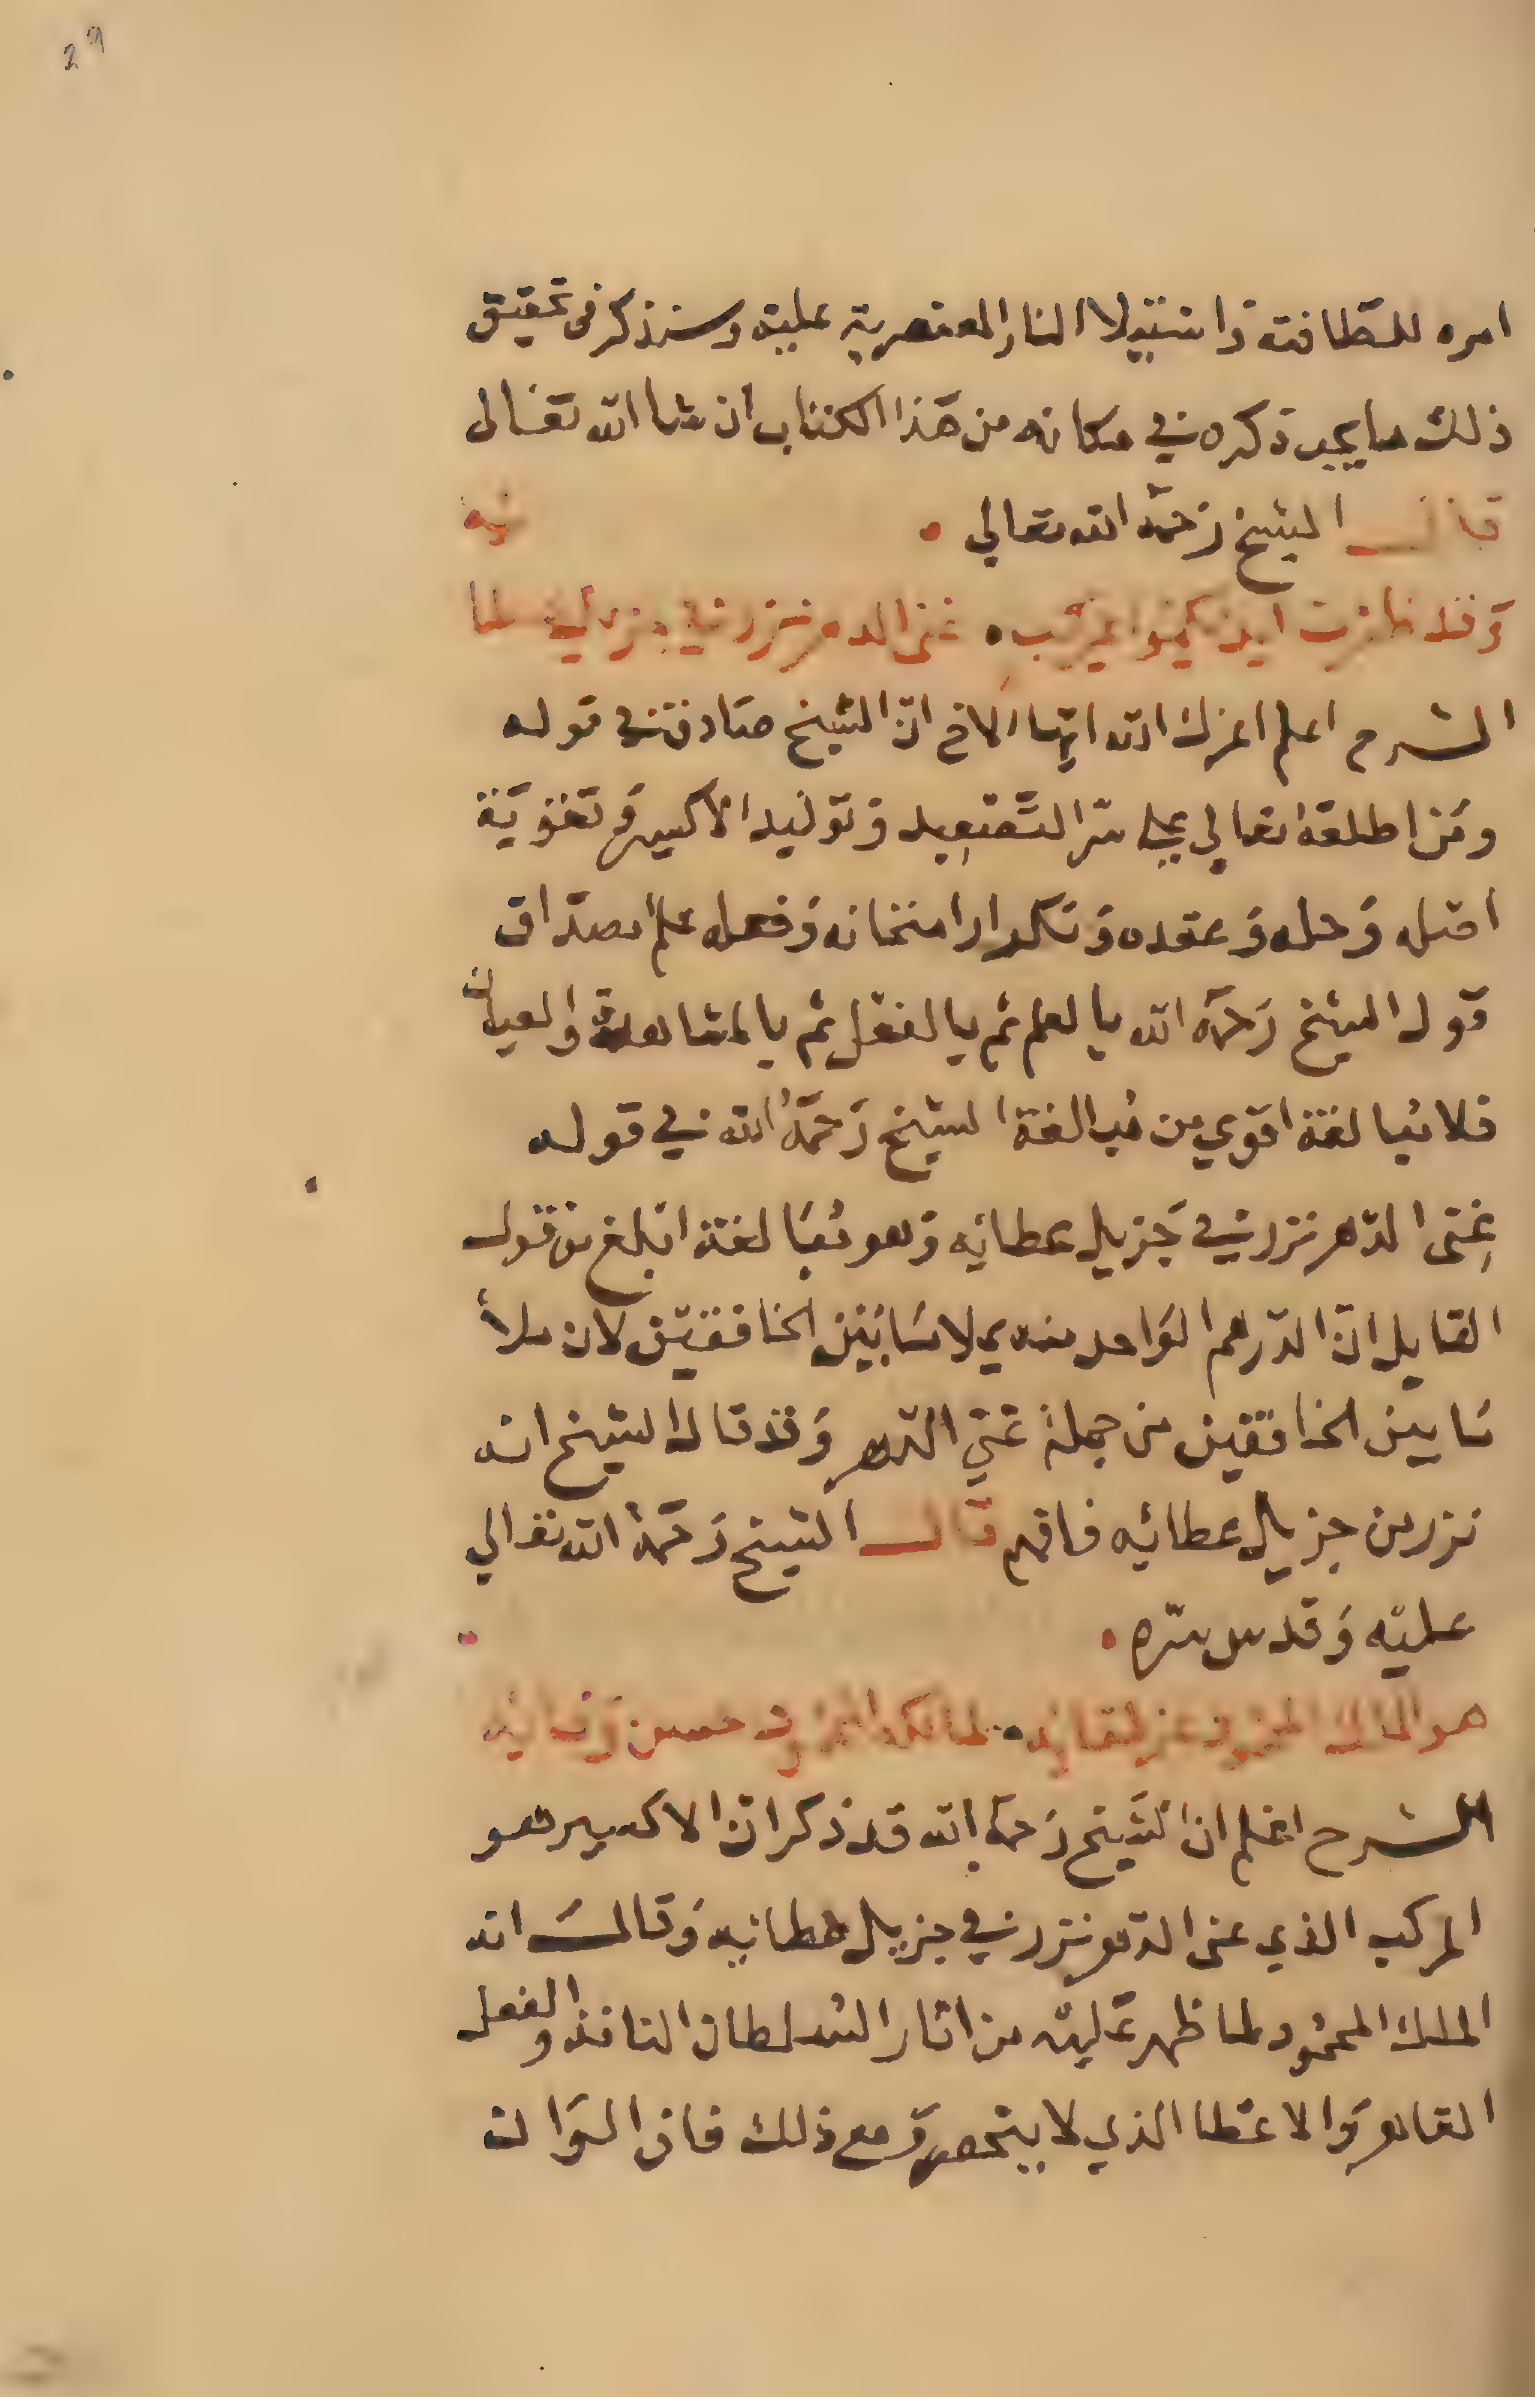 29
امره للطافته واستيلا النار العنصرية عليه وسنذكر فى تحقيق
ذلك ما يجب ذكره في مكانه من هذا الكتاب ان شا الله تعالى
قال الشيخ رحمه الله تعالي
غنى الدهر نزر في
الشرح اعلم اعزك الله ايها الاخ ان الشيخ صادق في قوله
ومن اطلعه تعالي على سر التصعيد وتوليد الاكسير وتقوية
اصله وحله وعقده وتكرار امتحانه وفعله علم مصداق
قول الشيخ رحمه الله بالعلم ثم بالفعل ثم بالمشاهدة والعيان
فلا مبالغة اقوي من مبالغة الشيخ رحمه الله في قوله
غنى الدهر نزر في جزيل عطائه وهو مبالغة ابلغ من قول
القايل ان الدرهم الواحد منه يملا ما بين الخافقين لان ملأ
ما بين الخافقين من جملة غني الدهر وقد قال الشيخ انه
نزر من جزيل عطائه فافهم قال الشيخ رحمه الله تعالي
عليه وقدس سره
هو الملك المحمود عز لقائه لمالكه المحمود حسن وفائه
الشرح اعلم ان الشيخ رحمه الله قد ذكر ان الاكسير هو
المركب الذي غنى الدهر نزر في جزيل عطائه وقال انه
الملك المحمود لما ظهر عليه من اثار السلطان النافذ والفعل
القاهر والاعطا الذي لا ينحصر ومع ذلك فان الوان